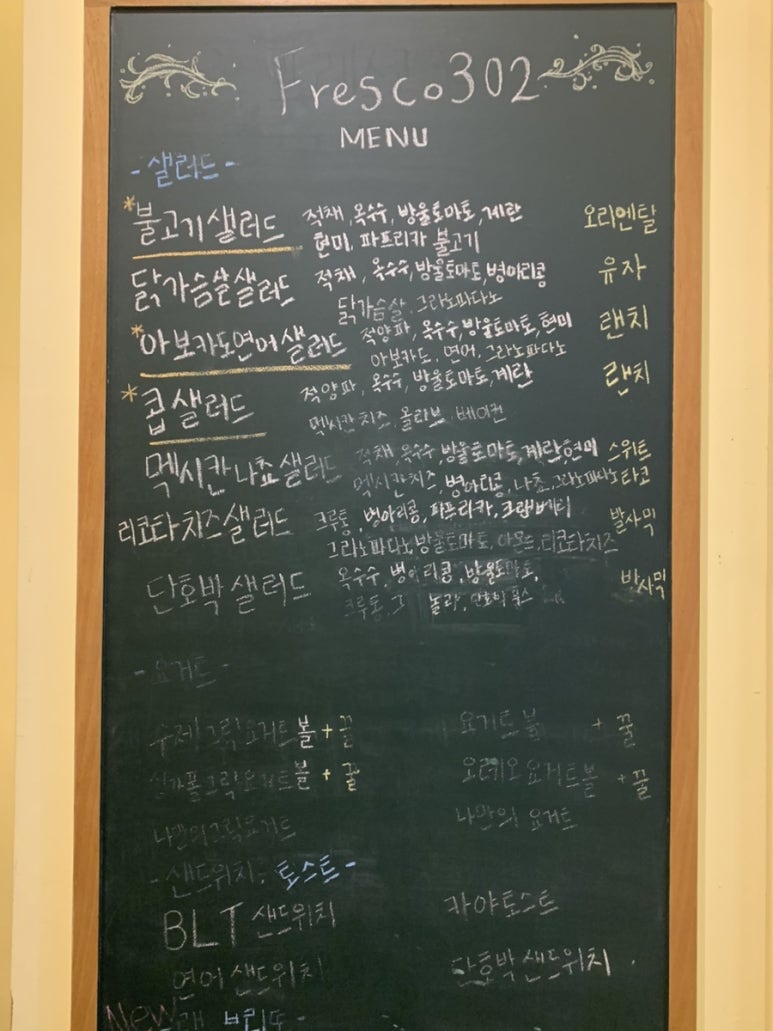 Fresco302
MENU
-샐러드-
*불고기샐러드 적채, 옥수수, 방울토마토, 계란 오리엔탈
현미, 파프리카 불고기
닭가슴살샐러드 적채, 옥수수, 방울토마토, 병아리콩 유자
닭가슴살, 그라노파다노
*아보카도연어샐러드 적양파, 옥수수, 방울토마토, 현미 랜치
아보카도, 연어, 그라노파다노
*콥샐러드 적양파, 옥수수, 방울토마토, 계란 랜치
멕시칸치즈, 올리브, 베이컨
멕시칸나쵸샐러드 적채, 옥수수, 방울토마토, 계란, 현미 스위트
멕시칸치즈, 병아리콩, 나쵸, 그라노파다노 타코
리코타치즈샐러드 크루통, 병아리콩, 파프리카, 크랜베리 발사믹
그라노파다노, 방울토마토, 아몬드, 리코타치즈
단호박샐러드 옥수수, 병아리콩, 방울토마토, 발사믹
크루통, 단호박무스
-요거트-
수제그릭요거트볼 + 꿀 요거트볼 + 꿀
그릭요거트볼 + 꿀 오레오요거트볼 + 꿀
나만의그릭요거트 나만의 요거트
-샌드위치, 토스트-
BLT 샌드위치 카야토스트
연어 샌드위치 단호박 샌드위치
New
브리또 -